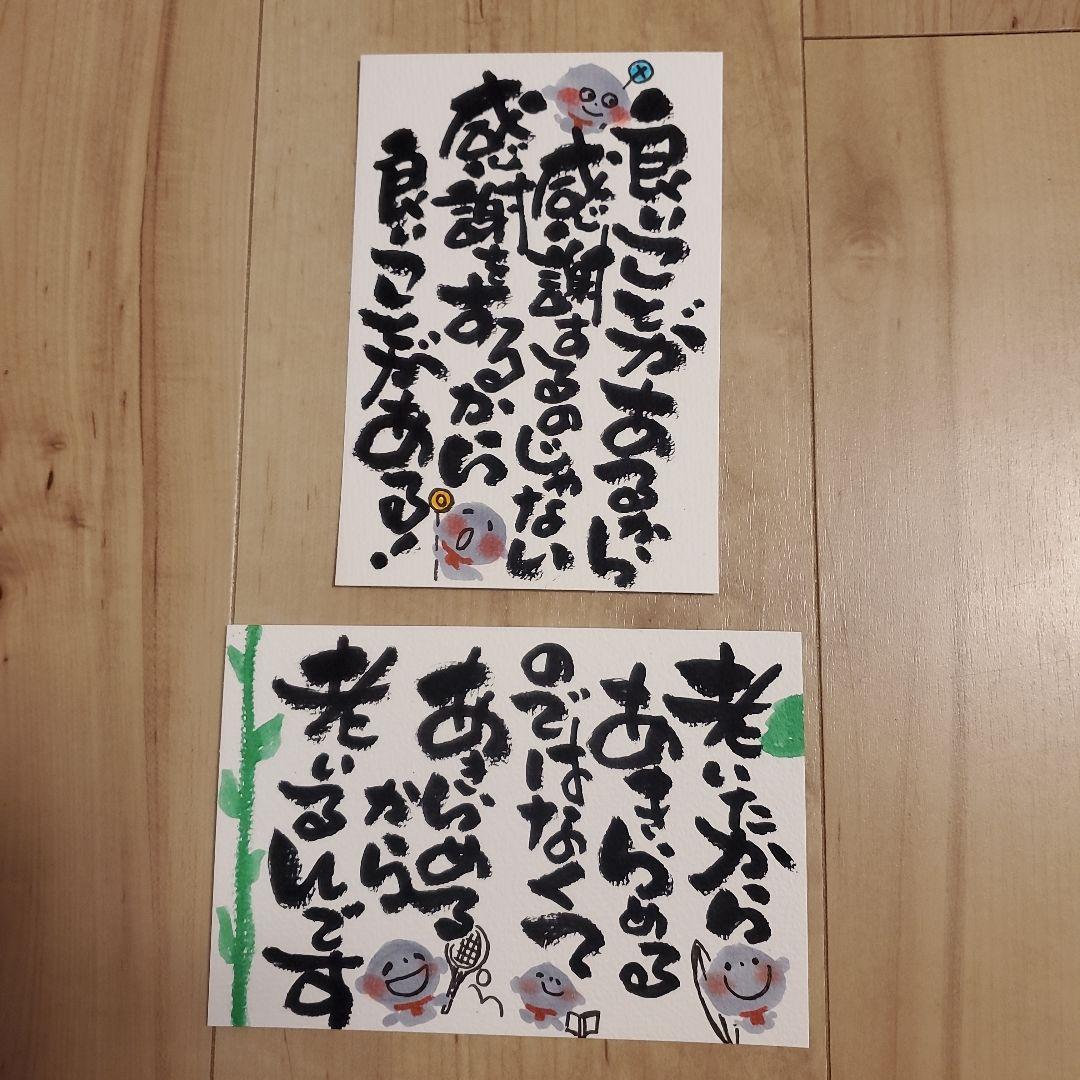 良いことがあるから
感謝するのじゃない
感謝をするから
良いことがある!
老いたから
あきらめる
のではなくて
あきらめる
から
老いるんです